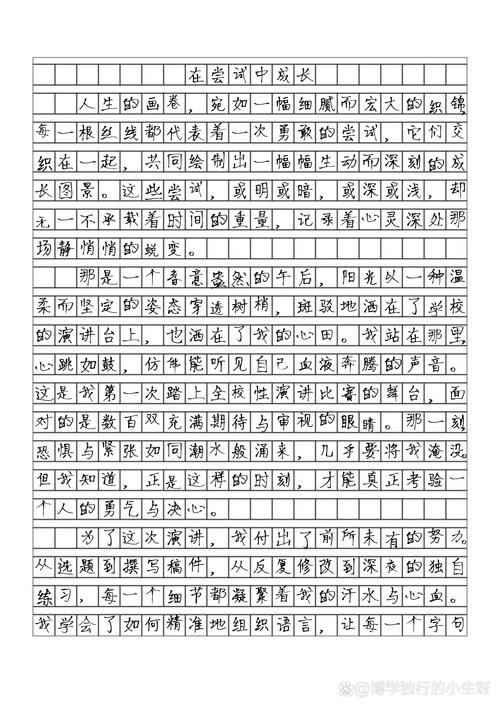 在尝试中成长
人生的画卷，宛如一幅细腻而宏大的织锦，
每一根丝线都代表着一次勇敢的尝试，它们交
织在一起，共同绘制出一幅幅生动而深刻的成
长图景。这些尝试，或明或暗，或深或浅，却
无一不承载着时间的重量，记录着心灵深处那
场静悄悄的蜕变。
那是一个春意盎然的午后，阳光以一种温
柔而坚定的姿态穿透树梢，斑驳地洒在了学校
的演讲台上，也洒在了我的心田。我站在那里，
心跳如鼓，仿佛能听见自己血液奔腾的声音。
这是我第一次踏上全校性演讲比赛的舞台，面
对的是数百双充满期待与审视的眼睛。那一刻，
恐惧与紧张如同潮水般涌来，几乎要将我淹没。
但我知道，正是这样的时刻，才能真正考验一
个人的勇气与决心。
为了这次演讲，我付出了前所未有的努力。
从选题到撰写稿件，从反复修改到深夜的独自
练习，每一个细节都凝聚着我的汗水与心血。
我学会了如何精准地组织语言，让每一个字句
@博学独行的小生呀